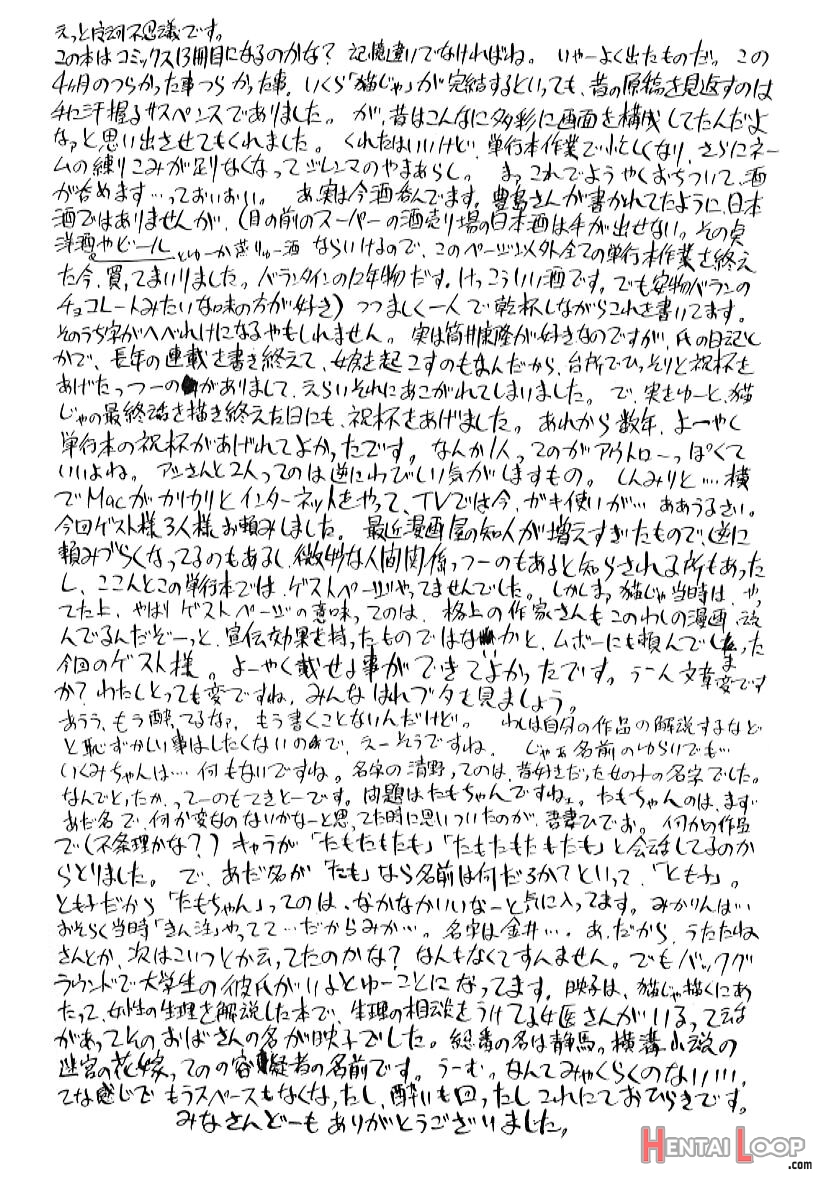 えっと井河不思議です。
この本はコミックス13冊目になるのかな？ 記憶違いでなければね。 いやーよく出たものだ。 この
4ヶ月のつらかった事つらかった事。いくら「猫じゃ」が完結するといっても、昔の原稿を見返すのは
手に汗握るサスペンスでありました。 が、昔はこんなに多彩に画面を構成してたんだよ
なァと思い出させてもくれました。 くれたはいいけど、単行本作業で忙しくなり、さらにネー
ムの練りこみが足りなくなってジレンマのやまあらし。 まっこれでようやくおちついて、酒
が呑めます…っておいおい。 あ、実は今酒呑んでます。豊島さんが書かれてたように、日本
酒ではありませんが、（目の前のスーパーの酒売り場の日本酒は手が出せない。その点
洋酒やビール とゆーか蒸りゅー酒 ならいけるので、このページ以外全ての単行本作業を終え
た今、買ってまいりました。バランタインの12年物だす。けっこういい酒です。でも安物バランの
チョコレートみたいな味の方が好き）つつましく一人で乾杯しながらこれを書いてます。
そのうち字がへべれけになるやもしれません。 実は筒井康隆が好きなのですが、氏の日記と
かで、長年の連載を書き終えて、女房を起こすのもなんだから、台所でひっそりと祝杯を
あげたっつーのがありまして、えらいそれにあこがれてしまいました。 で、実をゆーと、猫
じゃの最終話を描き終えた日にも、祝杯をあげました。 あれから数年、よーやく
単行本の祝杯があげれてよかったです。 なんか1人ってのがアウトローっぽくて
いいよね。 アシさんと2人ってのは逆にわびしい気がしますもの。 しんみりと…横
でMacがカリカリとインターネットをやって、TVでは今、ガキ使いが… ああうるさい。
今回ゲスト様3人様お頼みしました。 最近漫画屋の知人が増えすぎたもので、逆に
頼みづらくなってるのもあるし、微妙な人間関係っつーのもあると知らされる所もあった
し、ここんとこの単行本では、ゲストページやってませんでした。しかしまっ猫じゃ当時は、やっ
てた上、やはりゲストページの意味ってのは、格上の作家さんもこのわしの漫画、読
んでるんだぞーっと、宣伝効果を持ったものではないかと、ムボーにも頼んでしまった
今回のゲスト様。 よーやく載せる事ができてよかったです。うーん文章変です
か？わたしとっても変ですね、みんなはれブタも見ましょう。
あうう、もう酔ってるなァ、もう書くことないんだけど。 わしは自分の作品の解説するなど
と恥ずかしい事はしたくないので、えーそうですね。 じゃぁ名前のゆらいでも…
いくみちゃんは…何もないですね。名字の清野ってのは、昔好きだった女の子の名字でした。
なんでとったかってーのもてきとーです。問題はたもちゃんですねェ。たもちゃんのは、まず
あだ名で、何か変なのないかなーと思ってた時に思いついたのが、吾妻ひでお。何かの作品
で（不条理かな？）キャラが「たもたもたも」「たもたもたもたも」と会話してるのか
らとりました。 で、あだ名が「たも」なら名前は何だろかてといって、「とも子」。
とも子だから「たもちゃん」ってのは、なかなかいいなーと気に入ってます。みかりんは…
おそらく当時「きん注」やってて…だからみか…。名字は金井…。あ、だから、うたたね
さんとか、次はこいつとか云ってたのかな？なんもなくてすんません。でもバックグ
ラウンドで大学生の彼氏がいるとゆーことになってます。映子は、猫じゃ描くにあ
たって、女性の生理を解説した本で、生理の相談をうけてる女医さんがいるって話
があってそのおばさんの名が映子でした。総番の名は静馬。横溝小説の
迷宮の花嫁ってのの容疑者の名前です。うーむ。なんてみゃくらくのない…。
てな感じでもうスペースもなくなったし、酔いも回ったしこれにておひらきです。
みなさんどーもありがとうございました。
HENTAI LOOP
.com